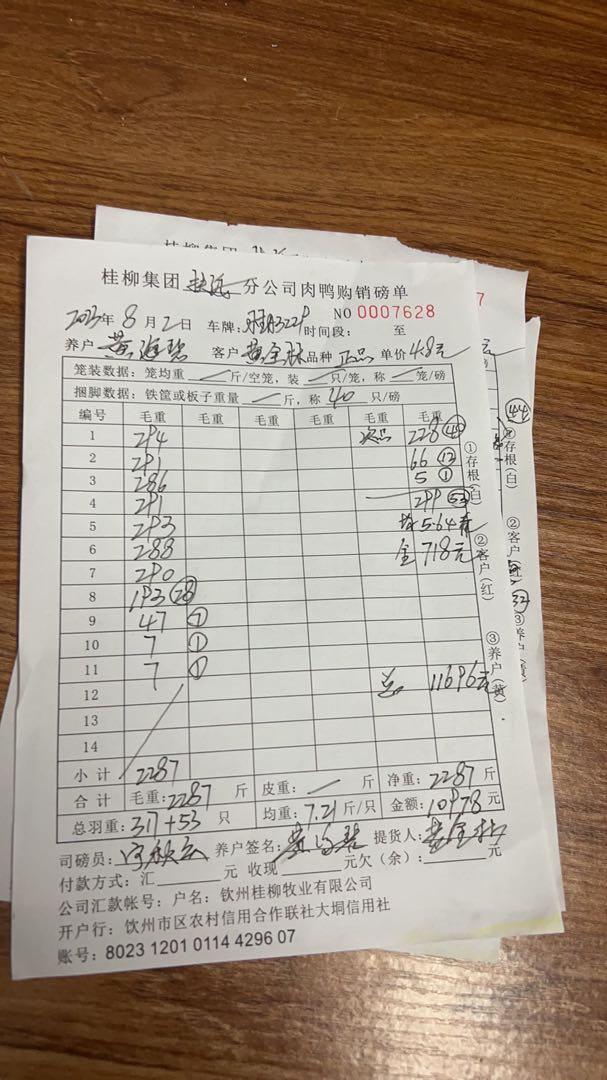 桂柳集团 分公司肉鸭购销磅单
2023年8月2日 车牌: 时间段: 至 NO 0007628
养户 黄 客户 黄金 品种 正品 单价 4.8元
笼装数据：笼均重 斤/空笼，装 只/笼，称 笼/磅
捆脚数据：铁筐或板子重量 斤，称 40 只/磅
编号 毛重 毛重 毛重 毛重 毛重 毛重
1 294 次品 228 40
2 291 66 12
3 286 5 1
4 291 299 53
5 293 均 5.64
6 288 金 718元
7 290
8 193 28
9 47 7
10 7 1
11 7 1
12 总 11696元
13
14
小计 2287
合计 毛重：2287 斤 皮重： 斤 净重：2287 斤
总羽重：317+53 只 均重：7.21 斤/只 金额：10978 元
司磅员： 养户签名： 提货人：黄金
付款方式：汇 元 收现 元欠（余）： 元
公司汇款帐号：户名：钦州桂柳牧业有限公司
开户行：钦州市区农村信用合作联社大垌信用社
账号：8023 1201 0114 4296 07
①存根(白)
②客户(红)
③养户(黄)
桂柳集团
7
元
44
①存根(白)
②客户(红)
32
③养户